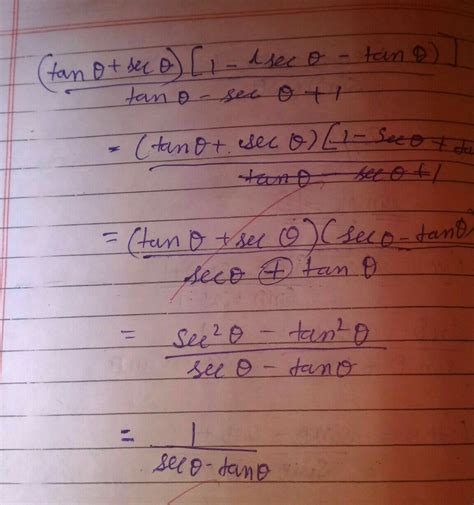 (tan θ + sec θ) [1 - (sec θ - tan θ)]
tan θ - sec θ + 1
= (tan θ + sec θ) [1 - sec θ + ta
tan θ - sec θ + 1
= (tan θ + sec θ) (sec θ - tan θ
sec θ + tan θ
= sec² θ - tan² θ
sec θ - tan θ
= 1
sec θ - tan θ